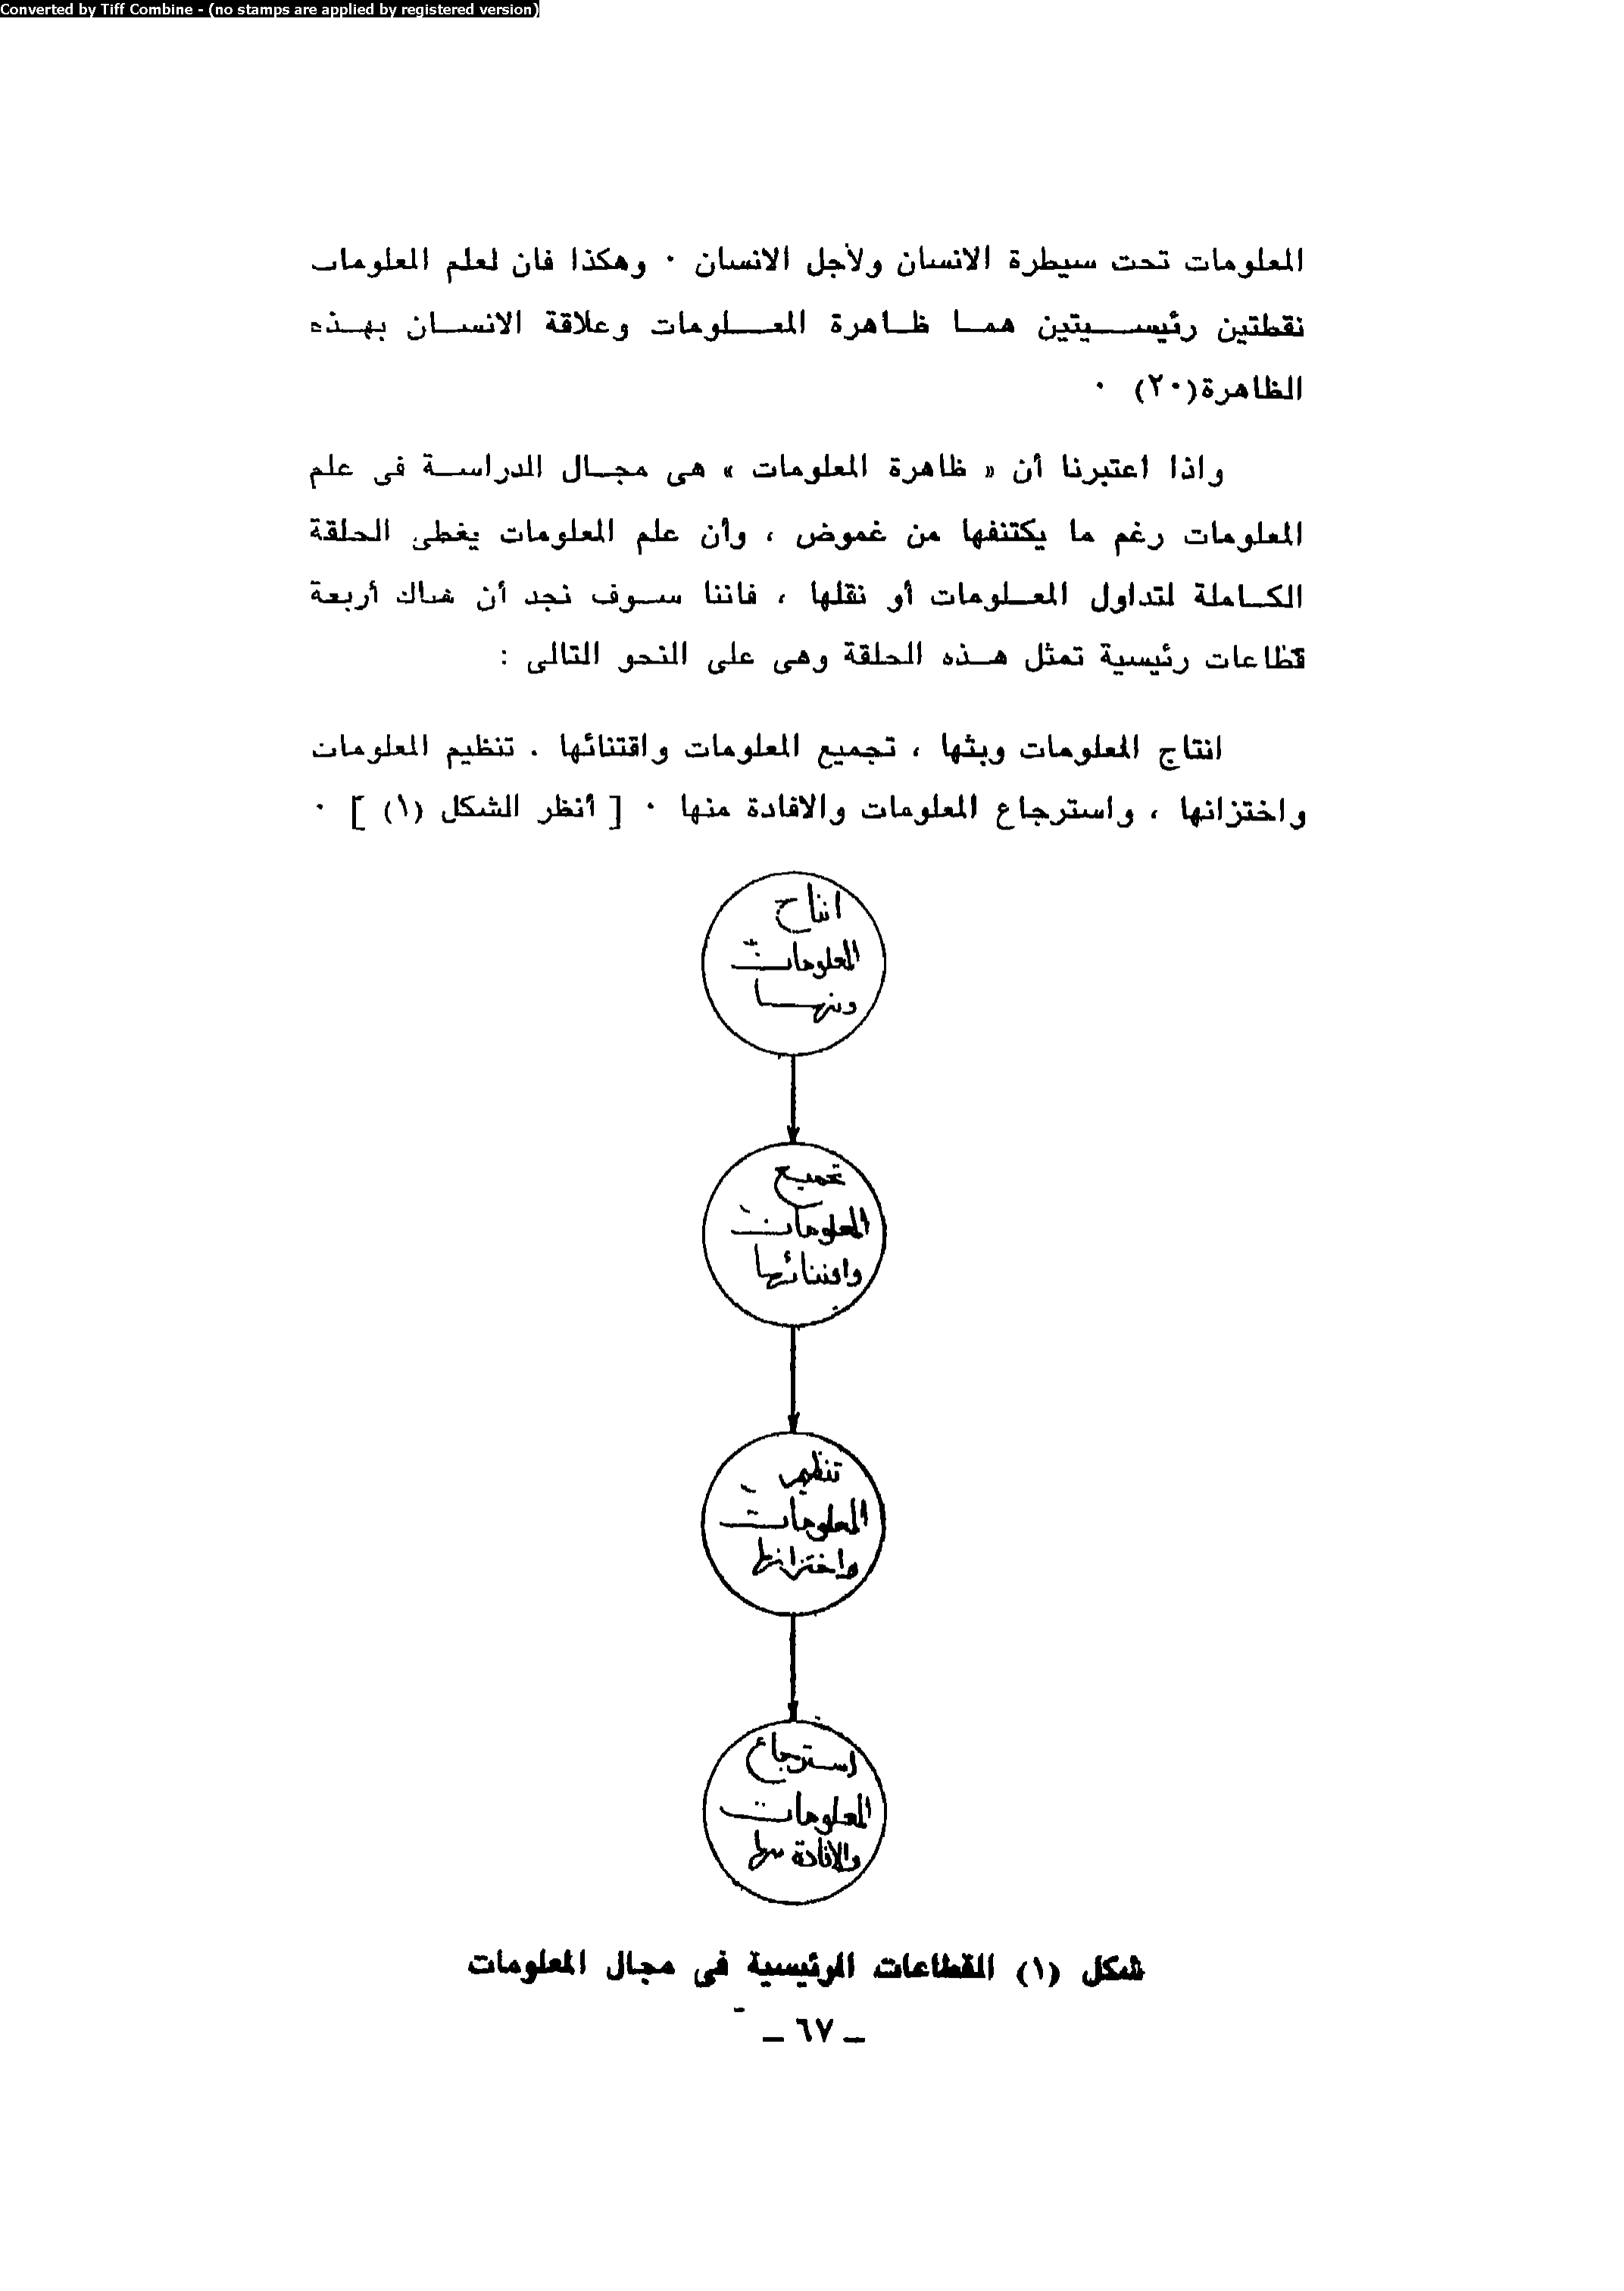 Converted by Tiff Combine - (no stamps are applied by registered version)
المعلومات تحت سيطرة الانسان ولأجل الانسان ٠ وهكذا فان لعلم المعلومات
نقطتين رئيســـيتين همـا ظـاهرة المعــلومات وعلاقة الانســان بهـذه
الظاهرة(٢٠) ٠
واذا اعتبرنا أن « ظاهرة المعلومات » هى مجـال الدراسـة فى علم
المعلومات رغم ما يكتنفها من غموض ، وأن علم المعلومات يغطى الحلقة
الكـاملة لتداول المعـلومات أو نقلها ، فاننا سـوف نجد أن هناك أربعة
قطاعات رئيسية تمثل هـذه الحلقة وهى على النحو التالى :
انتاج المعلومات وبثها ، تجميع المعلومات واقتنائها . تنظيم المعلومات
واختزانها ، واسترجاع المعلومات والافادة منها ٠ [ أنظر الشكل (١) ] ٠
انتاج
المعلومات
وبثهـا
تجميع
المعلومات
واقتنائها
تنظيم
المعلومات
واختزانها
استرجاع
المعلومات
والافادة منها
شكل (١) القطاعات الرئيسية فى مجال المعلومات
ــ ٦٧ ــ